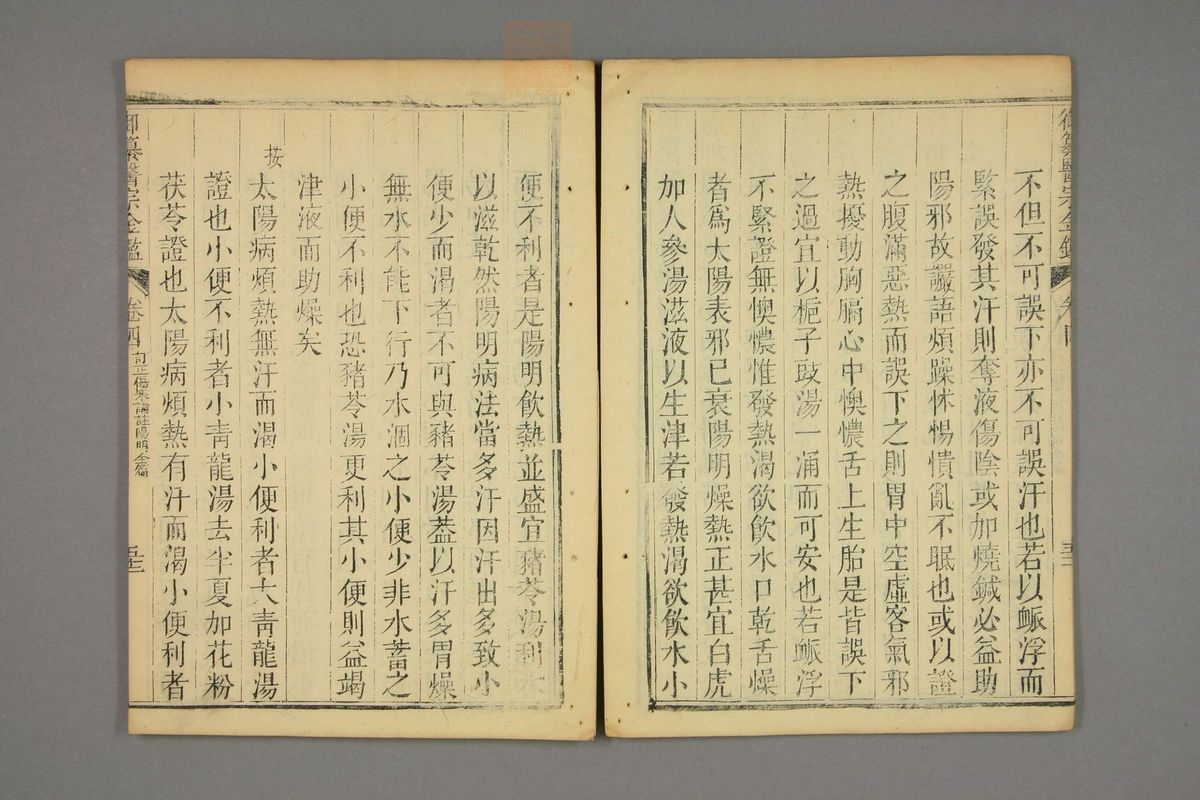 不但不可誤下亦不可誤汗也若以脈浮而
緊誤發其汗則奪液傷陰或加燒鍼必益助
陽邪故讝語煩躁怵惕憒亂不眠也或以證
之腹滿惡熱而誤下之則胃中空虛客氣邪
熱擾動胸膈心中懊憹舌上生胎是皆誤下
之過宜以梔子豉湯一涌而可安也若脈浮
不緊證無懊憹惟發熱渴欲飲水口乾舌燥
者為太陽表邪已衰陽明燥熱正甚宜白虎
加人參湯滋液以生津若發熱渴欲飲水小
便不利者是陽明飲熱並盛宜豬苓湯利水
以滋乾然陽明病法當多汗因汗出多致小
便少而渴者不可與豬苓湯葢以汗多胃燥
無水不能下行乃水涸之小便少非水蓄之
小便不利也恐豬苓湯更利其小便則益竭
津液而助燥矣
按太陽病煩熱無汗而渴小便利者大青龍湯
證也小便不利者小青龍湯去半夏加花粉
茯苓證也太陽病煩熱有汗而渴小便利者
御纂醫宗金鑑 卷四 訂正傷寒論註陽明全篇